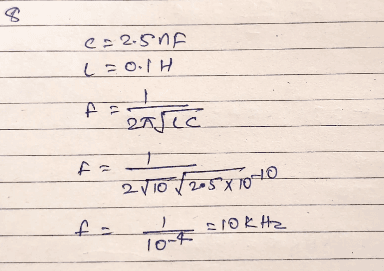 8
C = 2.5 nF
L = 0.1 H
f = 1 / 2π√LC
f = 1 / 2√10 √2.5 × 10⁻¹⁰
f = 1 / 10⁻⁴ = 10 KHz